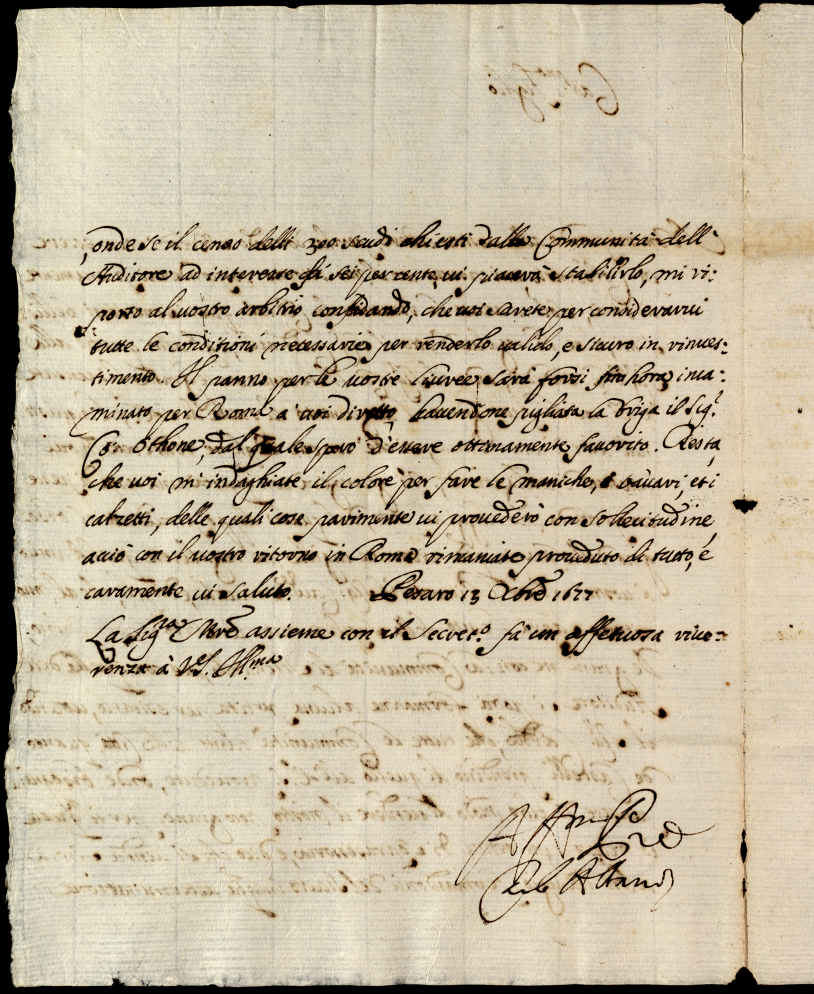 onde se il censo delli 300 scudi chiesti dalla Communità dell'
Auditore ad interesse di sei per cento, vi piaceva stabilirlo, mi ri:
porto al vostro arbitrio confidando, che voi sarete per considerarvi
tutte le conditioni necessarie per renderlo valido, e sicuro in rinves:
timento. Il panno per le vostre livree sarà forsi finhora inca:
minato per Roma a voi diretto, havendone pigliata la briga il Sig.r
Co: Othone, dal quale spero d'essere ottimamente favorito. Resta,
che voi m'indaghiate il colore per fare le maniche, i bavari, et i
calzetti, delle quali cose parimente vi provederò con sollecitudine,
acciò con il vostro ritorno in Roma rimaniate proveduto di tutto, e
caramente vi saluto. Pesaro 13 Xbre 1677
La Sig.ra Mre assieme con il Secret.o fà un affettuosa rive:
renza à V.S. Ill.ma
Aff.mo Pre
Albani